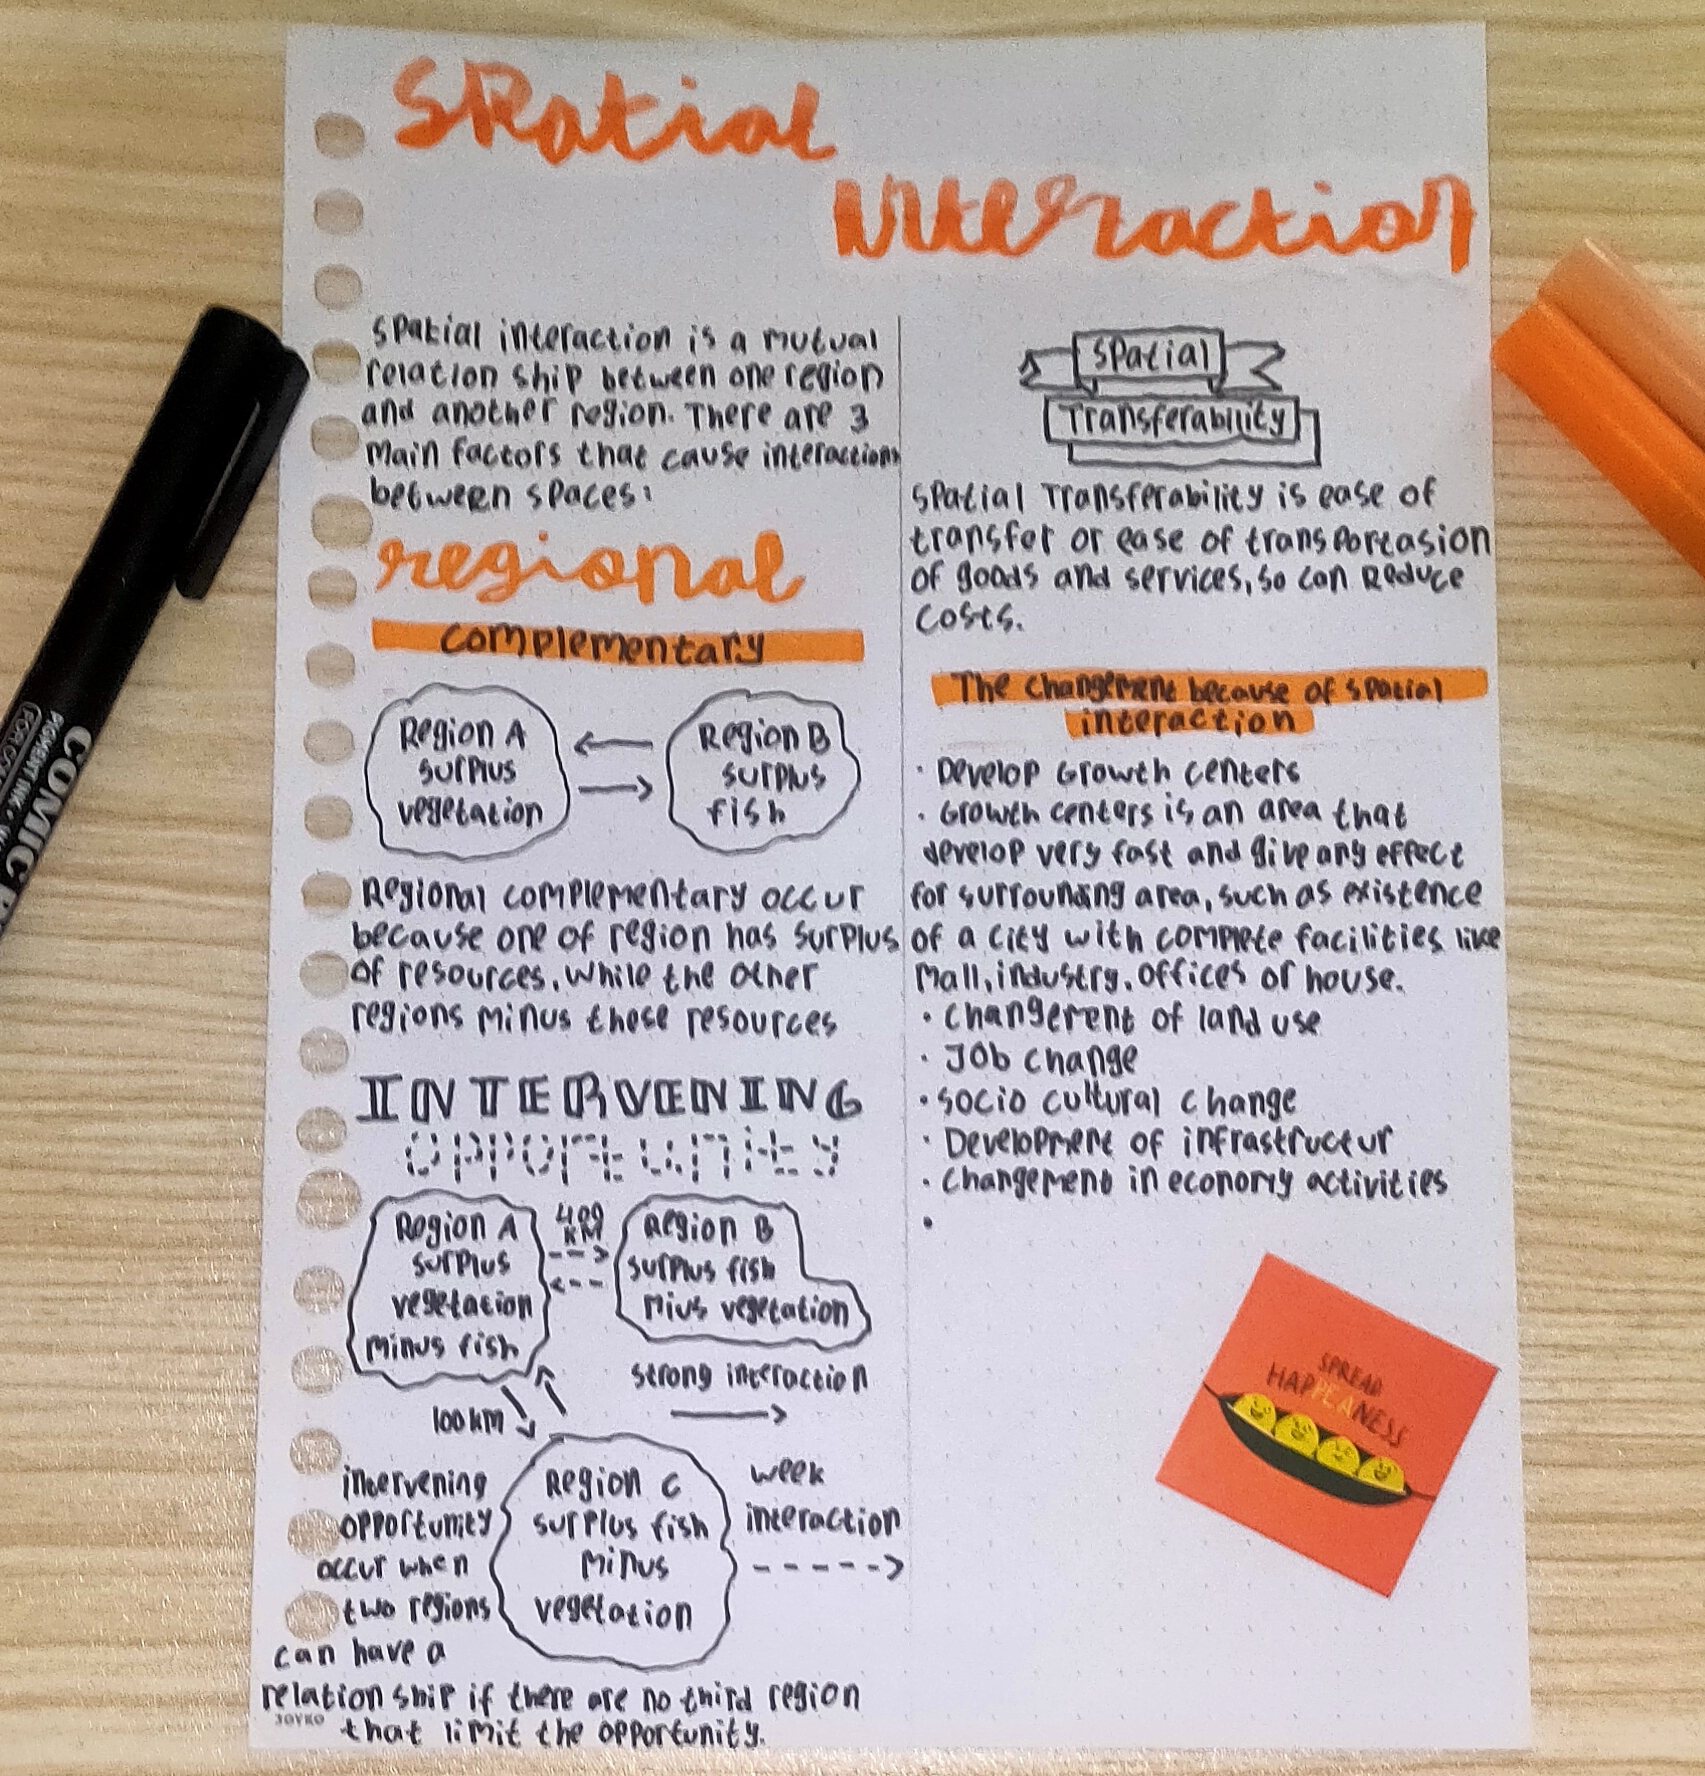 Spatial
Interaction
Spatial interaction is a mutual
relation ship between one region
and another region. There are 3
main factors that cause interactions
between spaces:
regional
complementary
Region A
surplus
vegetation
Region B
surplus
fish
Regional complementary occur
because one of region has surplus
of resources, while the other
regions minus these resources
INTERVENING
opportunity
Region A
surplus
vegetation
minus fish
400
KM
Region B
surplus fish
mius vegetation
strong interaction
100 km
Region C
surplus fish
minus
vegetation
week
interaction
intervening
opportunity
occur when
two regions
can have a
relation ship if there are no third region
that limit the opportunity.
JOYKO
Spatial
Transferability
Spatial Transferability is ease of
transfer or ease of transportasion
of goods and services, so can Reduce
costs.
The changement because of spatial
interaction
· Develop Growth centers
· Growth centers is an area that
develop very fast and give any effect
for surrounding area, such as existence
of a city with complete facilities like
mall, industry, offices or house.
· Changement of land use
· Job change
· Socio cultural change
· Development of infrastructur
· Changement in economy activities
·
SPREAD
HAPPEANESS
COMIC